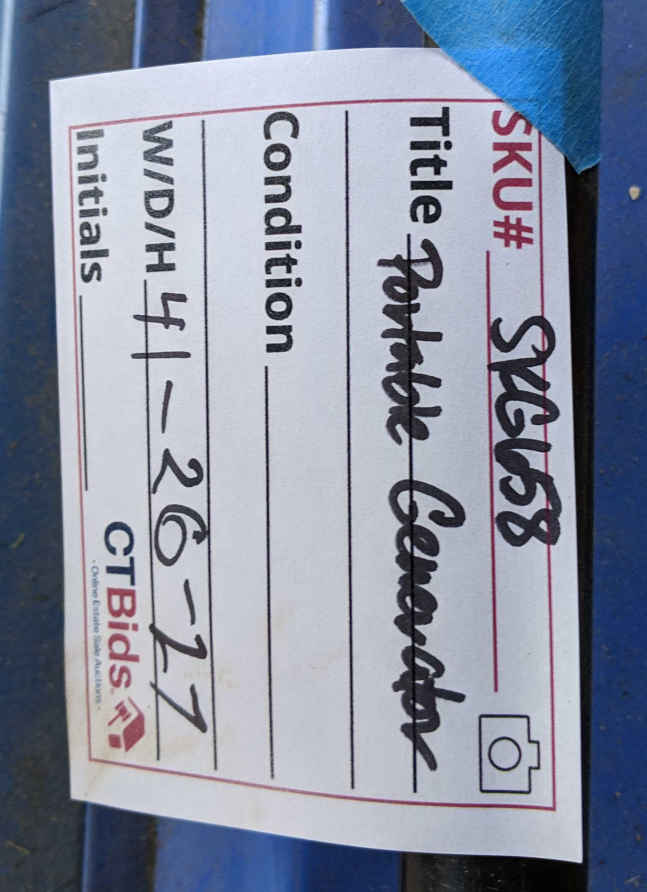 SKU#
Title Portable Generator
Condition
W/D/H 41-26-27
Initials
CTBids
- Online Estate Sale Auctions -